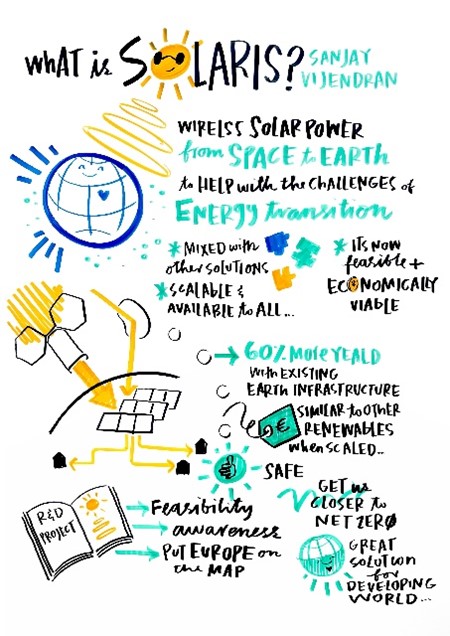 WHAT is SOLARIS?
SANJAY
VIJENDRAN
WIRELSS SOLAR POWER
from SPACE to EARTH
to HELP with the CHALLENGES of
ENERGY transition
* MIXED with
other SOLUTIONS
* SCALABLE &
AVAILABLE to ALL...
* ITS NOW
feasible +
ECONOMICALLY
VIABLE
60% More YEALD
With EXISTING
EARTH INFRASTRUCTURE
€
SIMILAR to OTHER
RENEWABLES
when SCALED...
SAFE
GET us
CLOSER to
NET ZERØ
R&D
PROJECT
Feasibility
awareness
PUT EUROPE on
the MAP
GREAT
SOLUTION
for
DEVELOPING
WORLD...